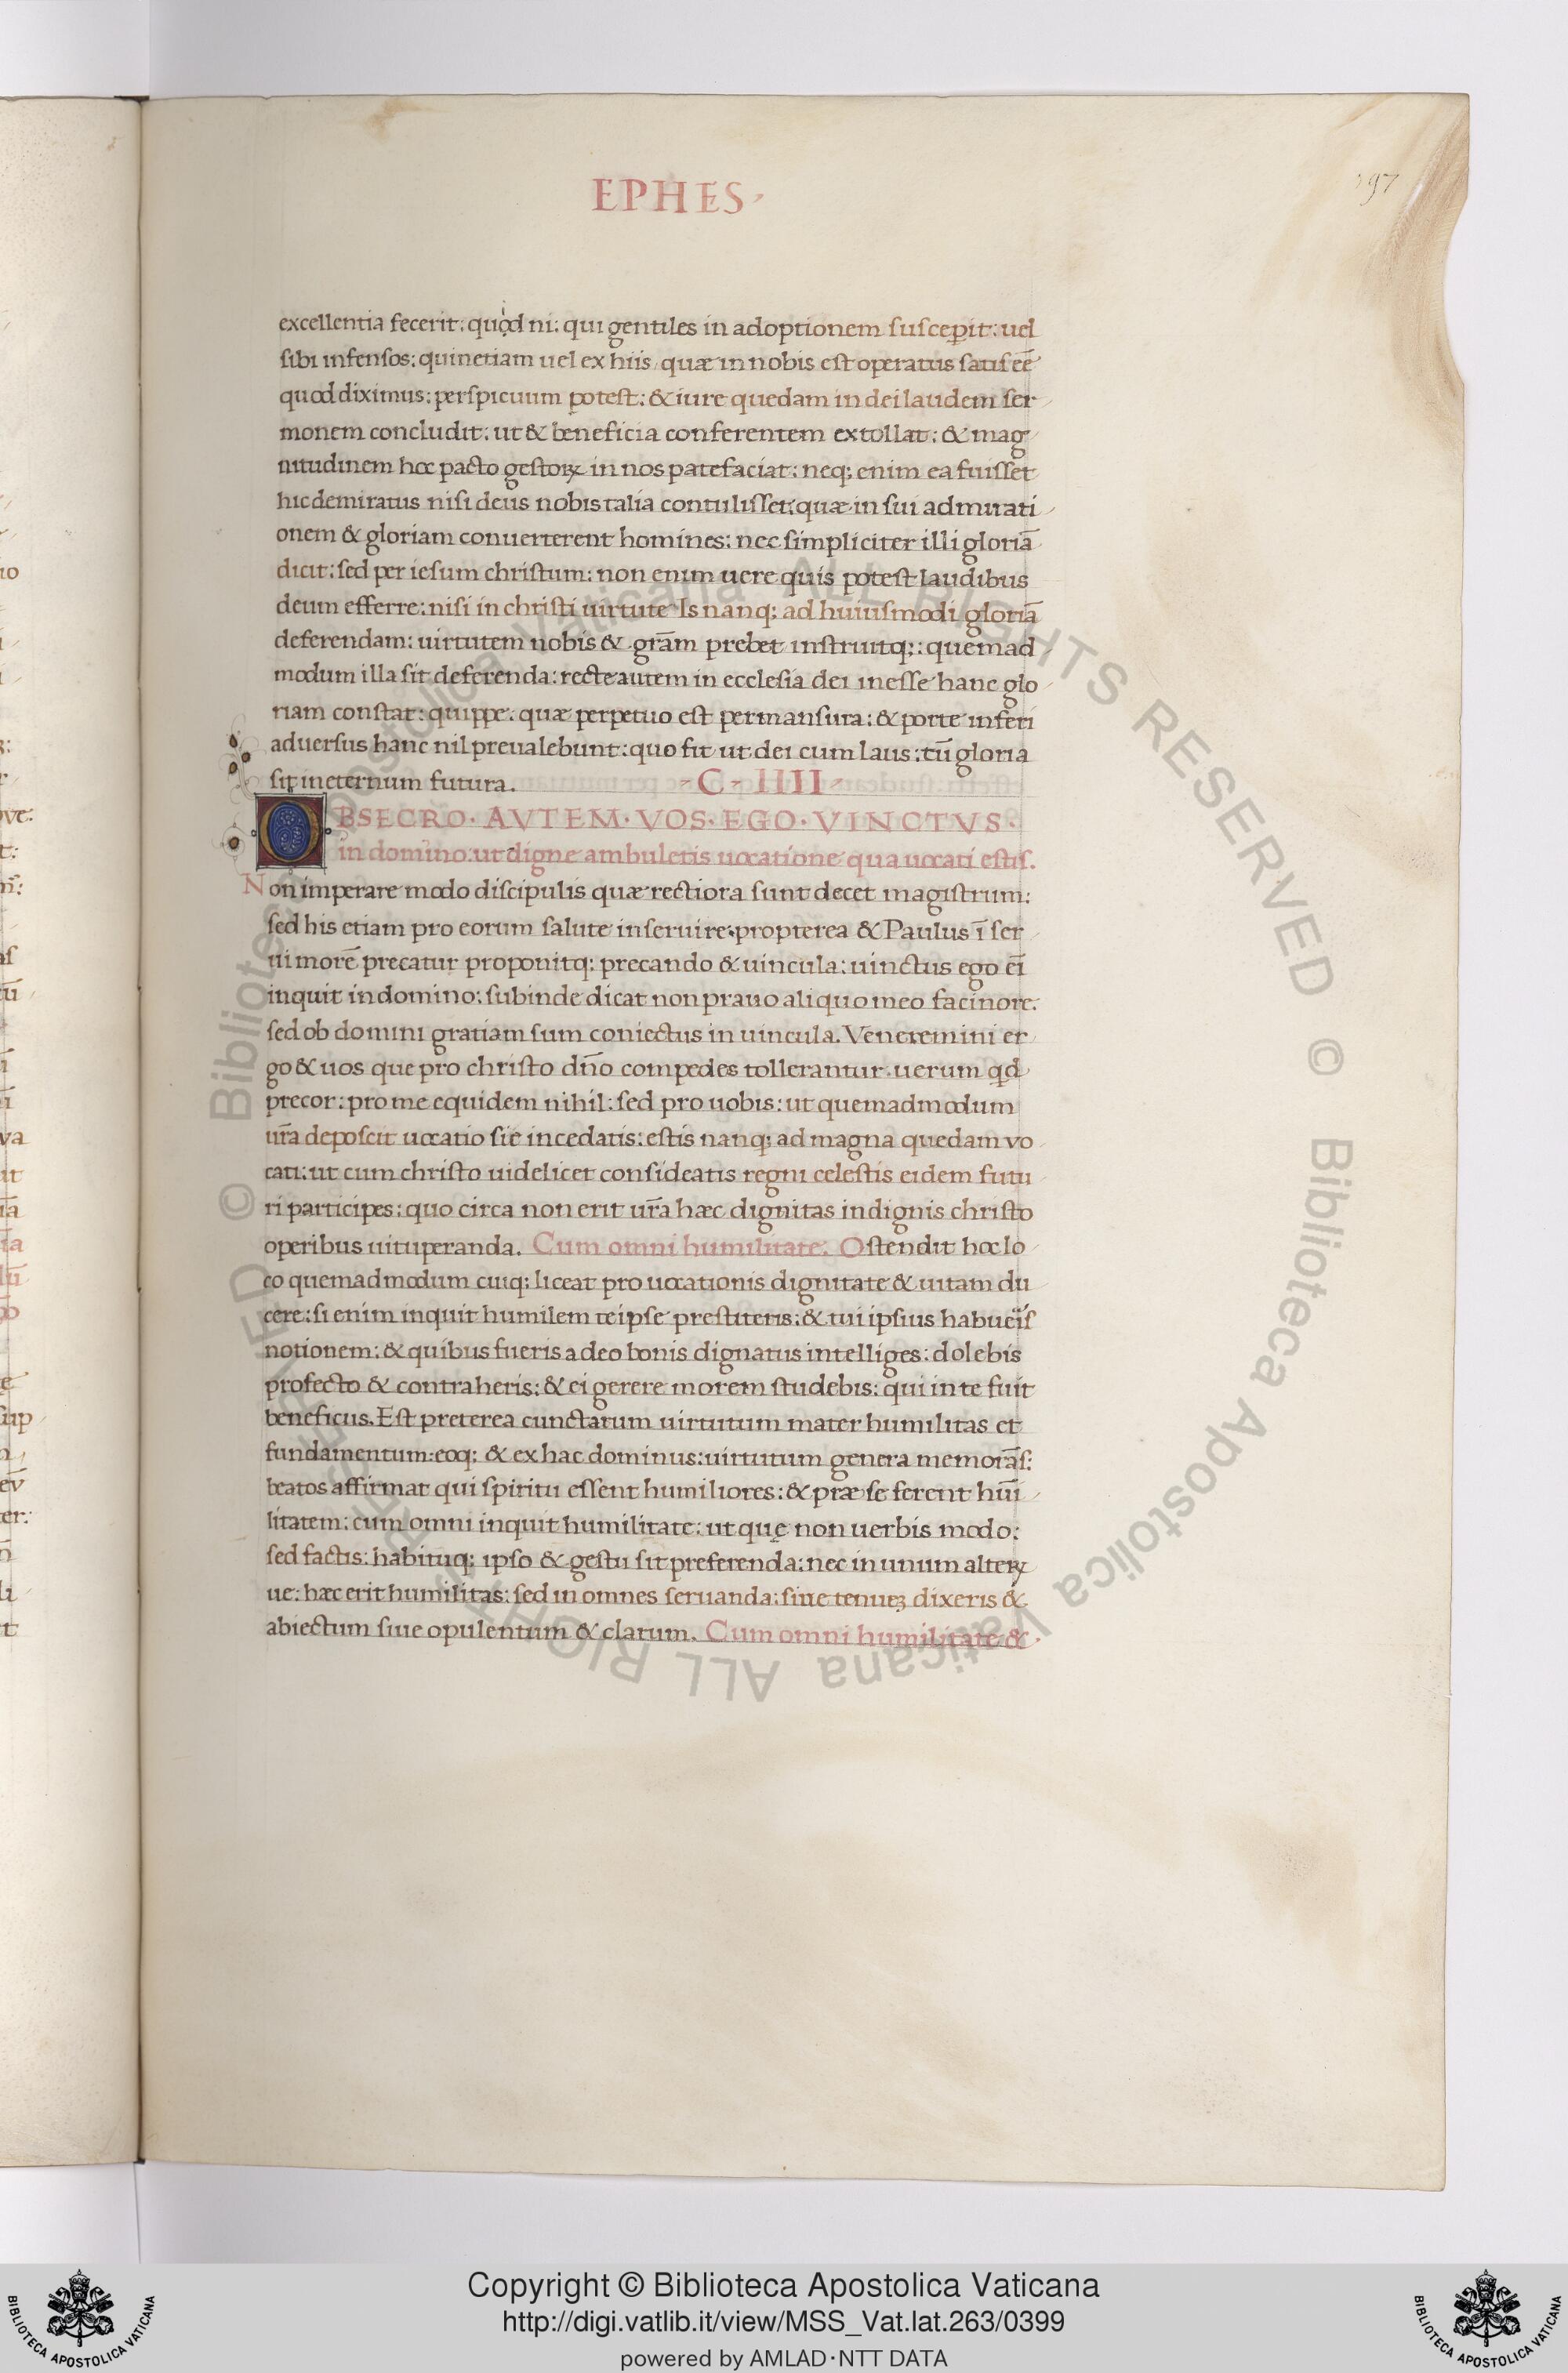 EPHES
197
excellentia fecerit: quod ni: qui gentiles in adoptionem susceperit: uel
sibi infensos: quinetiam uel ex hiis quæ in nobis est operatus satis eē
quod diximus: perspicuum potest: & iure quedam in dei laudem ser
monem concludit: ut & beneficia conferentem extollat: & mag
nitudinem hoc pacto gestoꝝ in nos patefaciat: neq; enim ea fuisset
hic demiratus nisi deus nobis talia contulisset: quæ in sui admirati
onem & gloriam conuerterent homines: nec simpliciter illi gloriā
dicit: sed per iesum christum: non enim uere quis potest laudibus
deum efferre: nisi in christi uirtute Is nanq; ad huiusmodi gloriā
deferendam: uirtutem nobis & grām prebet instruitq;: quemad
modum illa sit deferenda: recte autem in ecclesia dei inesse hanc glo
riam constat: quippe: quæ perpetuo est permansura: & porte inferi
aduersus hanc nil preualebunt: quo fit ut dei cum laus: tū gloria
sit in eternum futura.
C IIII
OBSECRO · AVTEM · VOS · EGO · VINCTVS ·
in domino: ut digne ambuletis uocatione qua uocati estis.
Non imperare modo discipulis quæ rectiora sunt decet magistrum:
sed his etiam pro eorum salute inseruire propterea & Paulus ī ser
ui morē precatur proponitq: precando & uincula: uinctus ego eī
inquit in domino: subinde dicat non prauo aliquo meo facinore.
sed ob domini gratiam sum coniectus in uincula. Veneremini er
go & uos que pro christo dn̄o compedes tollerantur. uerum qd
precor: pro me equidem nihil: sed pro uobis: ut quemadmodum
ur̄a deposcit uocatio sic incedatis: estis nanq; ad magna quedam vo
cati: ut cum christo uidelicet consideatis regni celestis eidem futu
ri participes: quo circa non erit ur̄a hæc dignitas indignis christo
operibus uituperanda. Cum omni humilitate. Ostendit hoc lo
co quemadmodum cuiq; liceat pro uocationis dignitate & uitam du
cere: si enim inquit humilem te ipse prestiteris: & tui ipsius habueris
notionem: & quibus fueris a deo bonis dignatus intelliges: dolebis
profecto & contraheris: & ei gerere morem studebis: qui in te fuit
beneficus. Est preterea cunctarum uirtutum mater humilitas et
fundamentum: eoq; & ex hac dominus: uirtutum genera memorās:
beatos affirmat qui spiritu essent humiliores: & præ se ferent hūi
litatem: cum omni inquit humilitate: ut quę non uerbis modo:
sed factis: habituq; ipso & gestu sit preferenda: nec in unum alteꝝ
ue: hæc erit humilitas: sed in omnes seruanda: siue tenueꝫ dixeris &
abiectum siue opulentum & clarum. Cum omni humilitate &
© Biblioteca Apostolica Vaticana ALL RIGHTS RESERVED
© Biblioteca Apostolica Vaticana ALL RIGHTS RESERVED
Copyright © Biblioteca Apostolica Vaticana
http://digi.vatlib.it/view/MSS_Vat.lat.263/0399
powered by AMLAD·NTT DATA
BIBLIOTECA APOSTOLICA VATICANA
BIBLIOTECA APOSTOLICA VATICANA